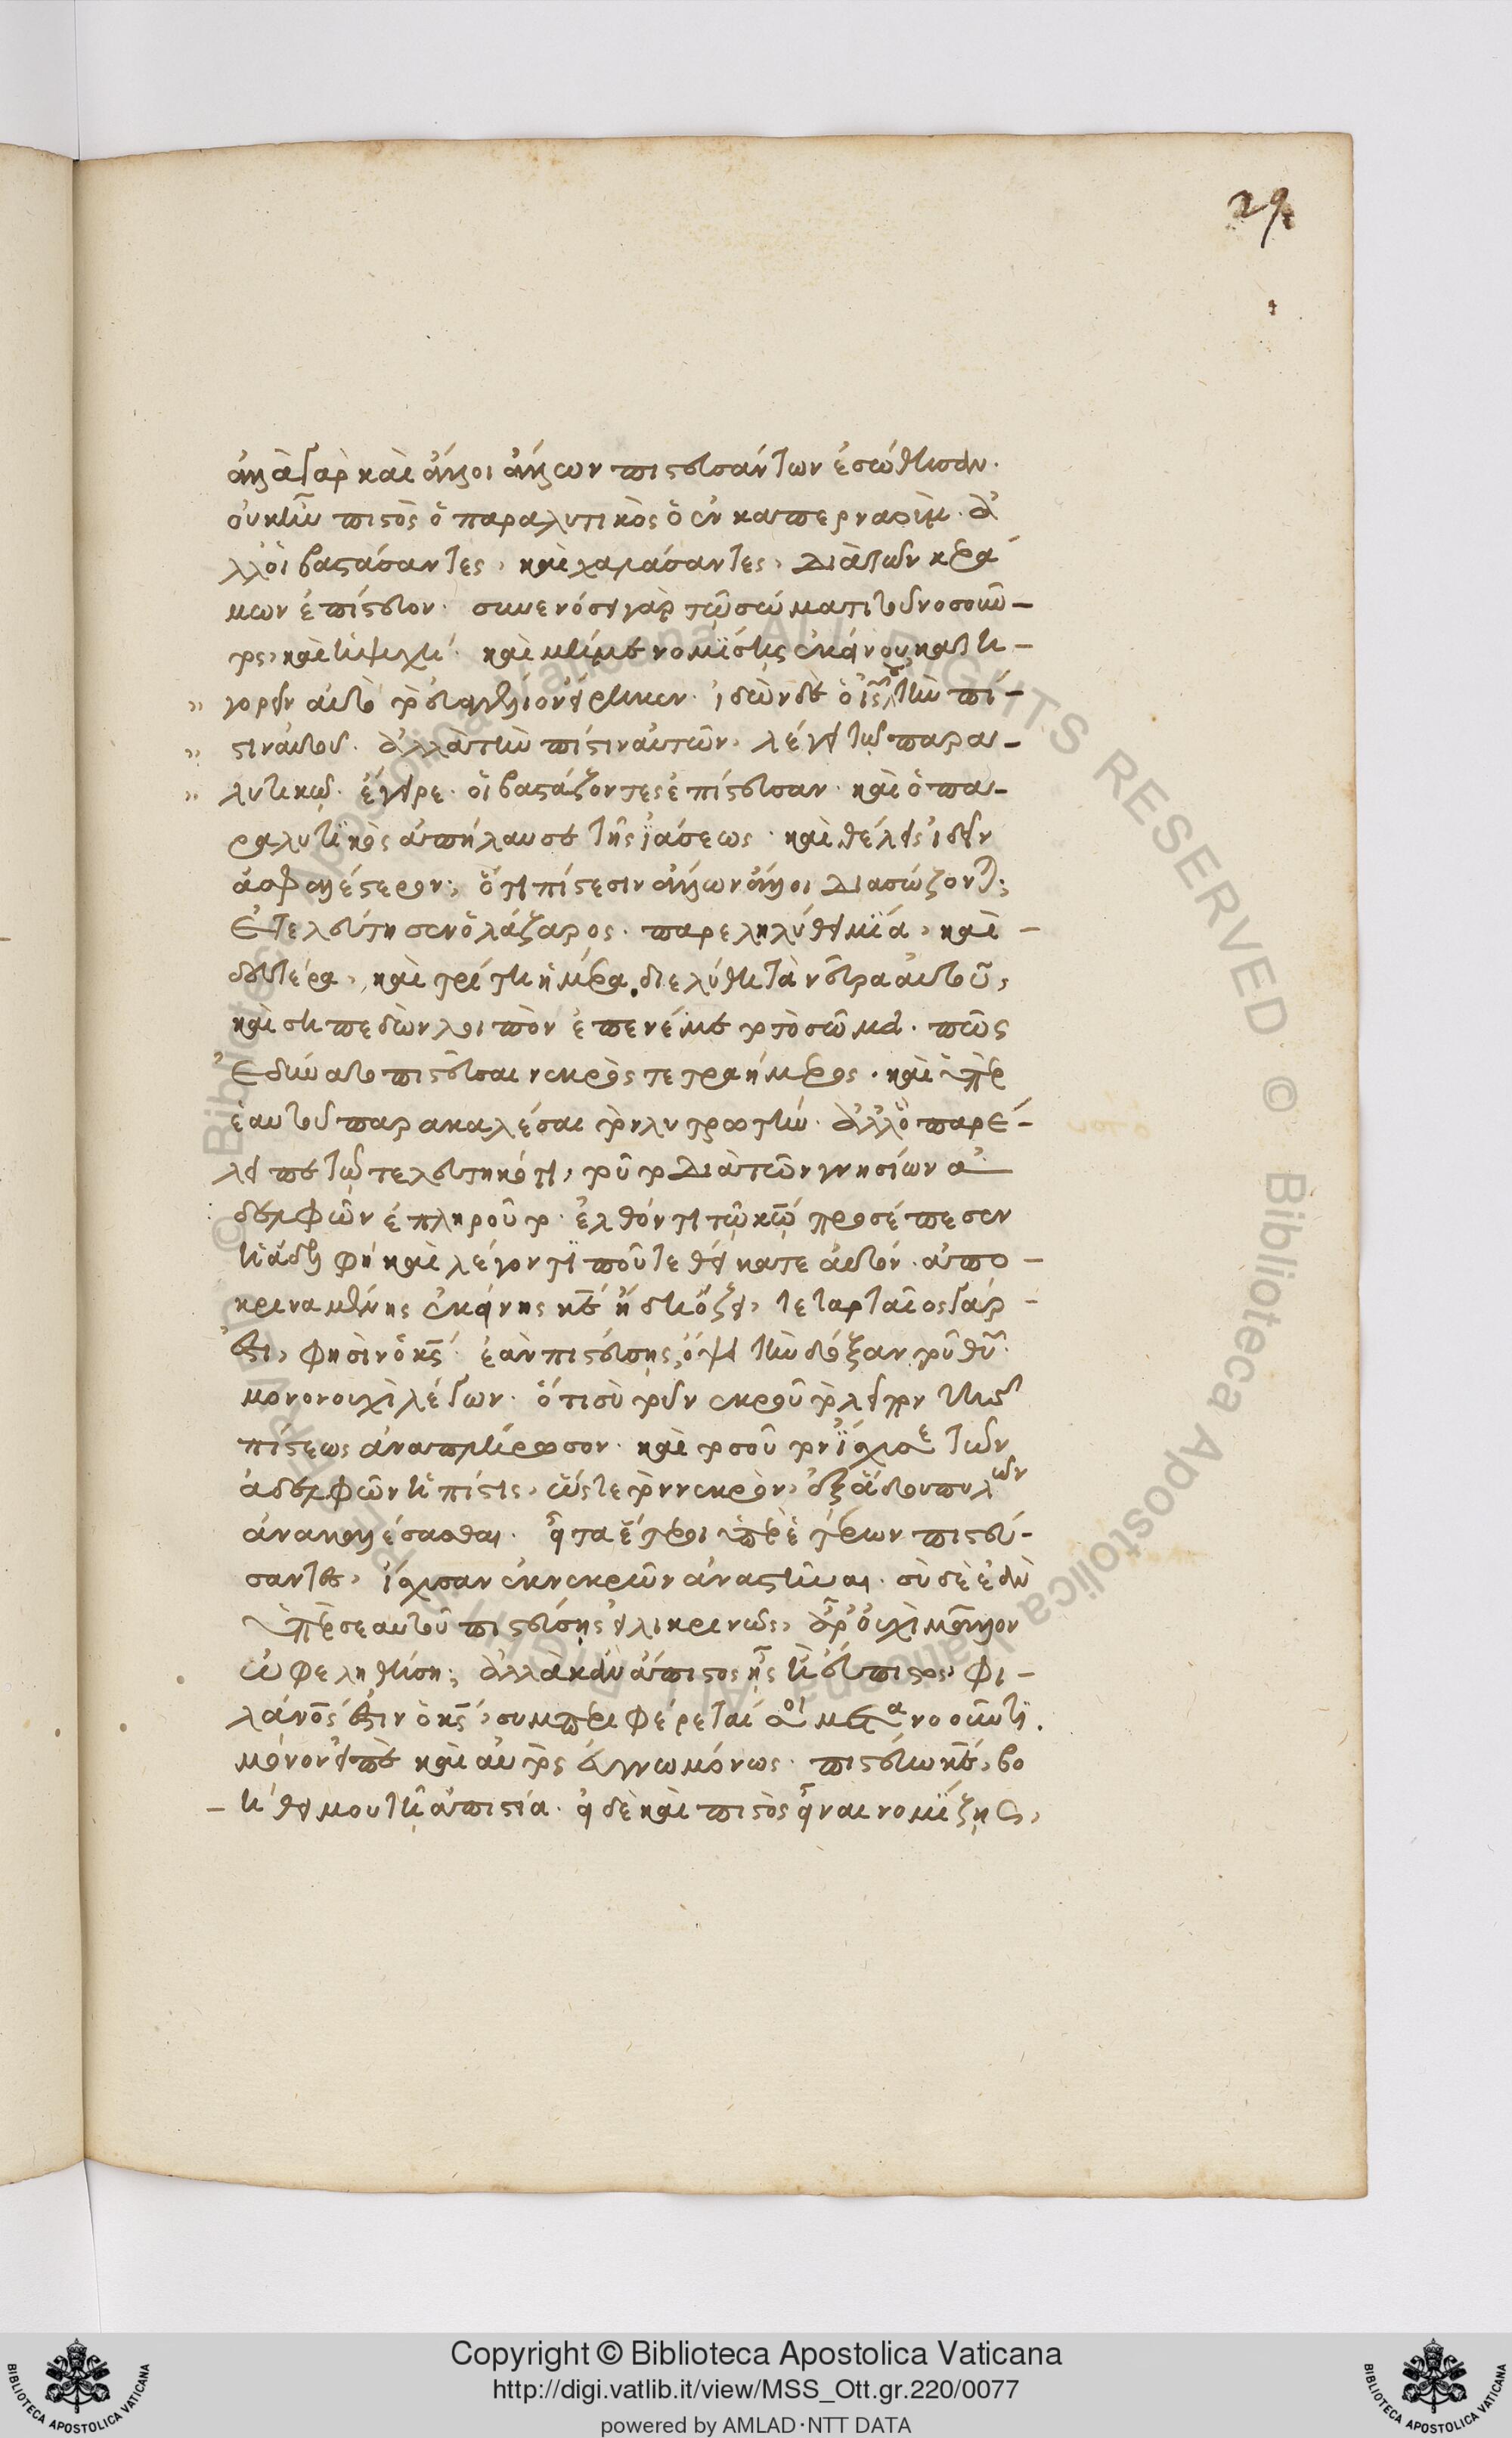 ἀλλὰ γὰρ καὶ ἄλλοι ἄλλων πιστευσάντων ἐσώθησαν.
οὐκ ἦν πιστὸς ὁ παραλυτικὸς ὁ ἐν καπερναούμ. ἀ
λλ' οἱ βαστάσαντες, καὶ χαλάσαντες, διὰ τῶν κερά
μων ἐπίστευον. συνενόσει γὰρ τῷ σώματι τοῦ νοσοῦν–
τος, καὶ ἡ ψυχή. καὶ μή με νομίσῃς ἐκείνου κατη–
» γορεῖν αὐτὸ τὸ εὐαγγέλιον εἴρηκεν. ἰδὼν δὲ ὁ ἰς οὐ τὴν πί–
» στιν αὐτοῦ. ἀλλὰ τὴν πίστιν αὐτῶν, λέγει τῷ παρα–
» λυτικῷ. ἔγειρε. οἱ βαστάζοντες ἐπίστευσαν. καὶ ὁ πα–
ραλυτικὸς ἀπήλαυσε τῆς ἰάσεως. καὶ θέλεις ἰδεῖν
ἀσφαλέστερον; ὅτι πίστεσιν ἄλλων ἄλλοι διασώζονται;
Ἐτελεύτησεν ὁ λάζαρος. παρεληλύθει μία, καὶ –
δευτέρα, καὶ τρίτη ἡμέρα. διελύθη τὰ νεῦρα αὐτοῦ,
καὶ σηπεδὼν λοιπὸν ἐπενέμετο τὸ σῶμα. πῶς
Ἐδύνατο πιστεῦσαι νεκρὸς τετραήμερος. καὶ ὑπὲρ
ἑαυτοῦ παρακαλέσαι τὸν λυτρωτήν. ἀλλ' ὃ παρέ–
λειπε τῷ τελευτηκότι, τοῦτο διὰ τῶν γνησίων ἀ
δελφῶν ἐπληροῦτο. ἐλθόντι τῷ κῷ προσέπεσεν
ἡ ἀδελφή καὶ λέγοντι ποῦ τεθείκατε αὐτόν. ἀπο –
κριναμένης ἐκείνης κε ἤδη ὄζει, τεταρταῖος γάρ –
ἐστι, φησὶν ὁ κς. ἐὰν πιστεύσῃς, ὄψει τὴν δόξαν τοῦ θυ.
μονονουχὶ λέγων. ὅτι σὺ τοῦ νεκροῦ τὸ λεῖπον τῆς
πίστεως ἀναπλήρωσον. καὶ τοσοῦτον ἴσχυσε τῶν
ἀδελφῶν ἡ πίστις, ὥστε τὸν νεκρὸν, ἐξ ἅδου πυλῶν
ἀνακαλέσασθαι. εἶτα ἕτεροι ὑπὲρ ἑτέρων πιστεύ–
σαντες, ἴσχυσαν ἐκ νεκρῶν ἀναστῆναι. σὺ δὲ ἐὰν
ὑπὲρ σεαυτοῦ πιστεύσῃς εἰλικρινῶς, ἆρ' οὐχὶ μᾶλλον
ὠφεληθήσῃ; ἀλλὰ κἂν ἄπιστος ἦς ἢ ὀλιγόπιστος, φι –
λάνος ἐστιν ὁ κς, συμπεριφέρεταί σοι μετανοοῦντι.
μόνον εἰπὲ καὶ αὐτὸς εὐγνωμόνως. πιστεύω κε, βο
– ήθει μου τῇ ἀπιστίᾳ. εἰ δὲ καὶ πιστὸς εἶναι νομίζῃς,
Copyright © Biblioteca Apostolica Vaticana
http://digi.vatlib.it/view/MSS_Ott.gr.220/0077
powered by AMLAD·NTT DATA